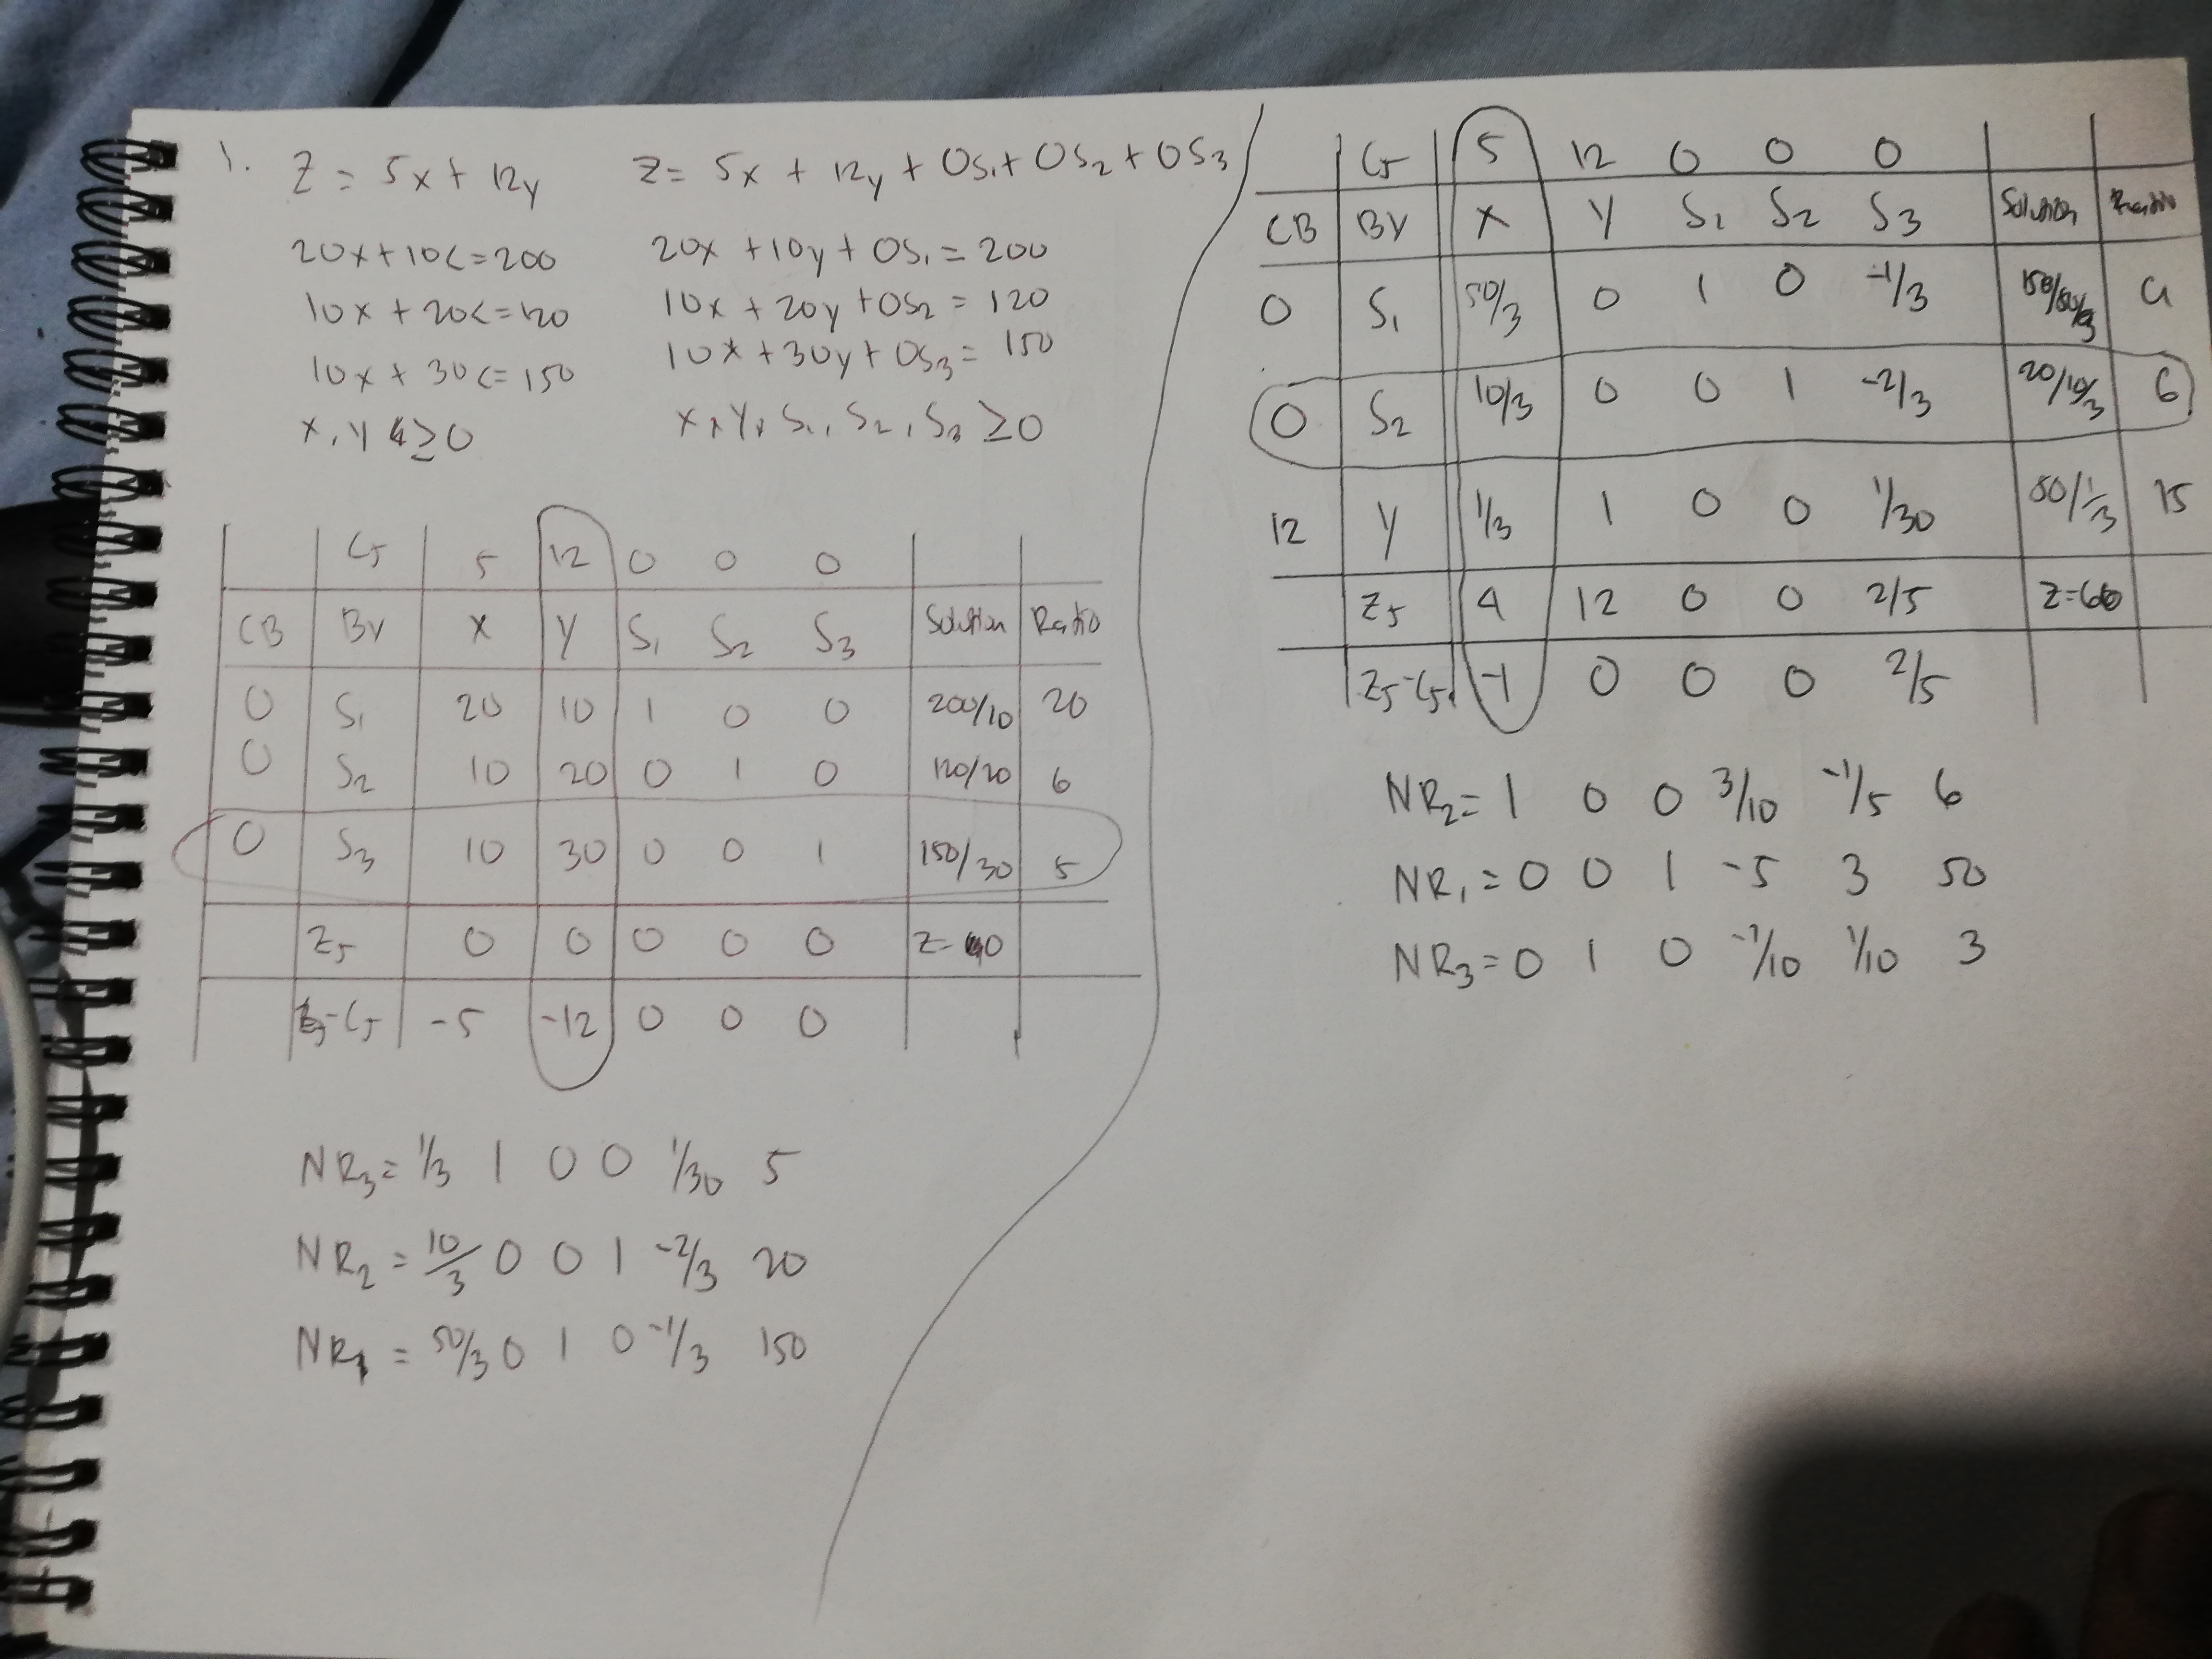 1. Z = 5x + 12y
20x + 10 <= 200
10x + 20 <= 120
10x + 30 <= 150
x, y ≥ 0
Z = 5x + 12y + 0S1 + 0S2 + 0S3
20x + 10y + 0S1 = 200
10x + 20y + 0S2 = 120
10x + 30y + 0S3 = 150
x, y, S1, S2, S3 ≥ 0
CJ 5 12 0 0 0
CB BV X Y S1 S2 S3 Solution Ratio
0 S1 20 10 1 0 0 200/10 20
0 S2 10 20 0 1 0 120/20 6
0 S3 10 30 0 0 1 150/30 5
ZJ 0 0 0 0 0 Z=0
ZJ-CJ -5 -12 0 0 0
NR3 = 1/3 1 0 0 1/30 5
NR2 = 10/3 0 0 1 -2/3 20
NR1 = 50/3 0 1 0 -1/3 150
CJ 5 12 0 0 0
CB BV X Y S1 S2 S3 Solution Ratio
0 S1 50/3 0 1 0 -1/3 150/50/3 9
0 S2 10/3 0 0 1 -2/3 20/10/3 6
12 Y 1/3 1 0 0 1/30 15
ZJ 4 12 0 0 2/5 Z=60
ZJ-CJ -1 0 0 0 2/5
NR2 = 1 0 0 3/10 -1/5 6
NR1 = 0 0 1 -5 3 50
NR3 = 0 1 0 -1/10 1/10 3